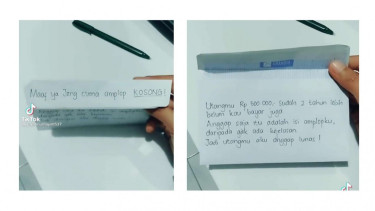 Maaf ya Jeng cuma amplop KOSONG!
TikTok
Utangmu Rp 500.000, sudah 2 tahun lebih
belum kau bayar juga
Anggap saja itu adalah isi amplopku,
daripada gak ada kejelasan.
Jadi utangmu aku anggap lunas!